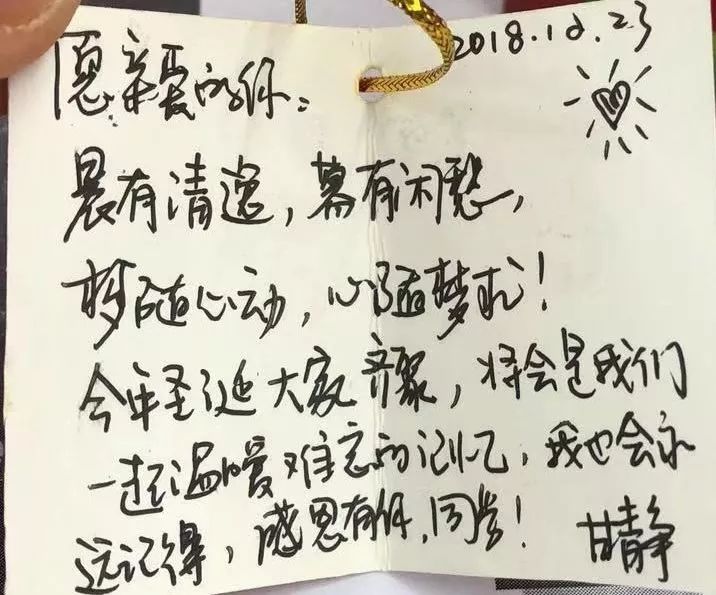 2018.12.23
愿亲爱的你：
晨有清逸，暮有闲愁，
梦随心动，心随梦求！
今年圣诞大家齐聚，将会是我们
一起温暖难忘的记忆，我也会永
远记得，感恩有你，同学！ 甘静